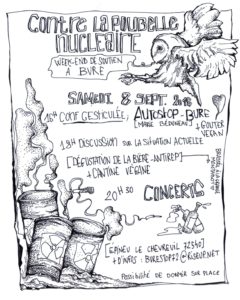 CONTRE LA POUBELLE
NUCLEAIRE
WEEK-END DE SOUTIEN
A BURE
SAMEDI 8 SEPT. 2018
16H CONF GESTICULÉE,
AUTOSTOP-BURE
[MARIE BÉDUNEAU]
+ GOUTER
VEGAN
18H DISCUSSION SUR LA SITUATION ACTUELLE
[DÉGUSTATION DE LA BIÈRE-ANTIREP]
+ CANTINE VÉGANE
20H30 CONCERTS
LE CHEVREUIL 72540]
+ D'INFOS : BURESTOP72@RISEUP.NET
POSSIBILITÉ DE DORMIR SUR PLACE